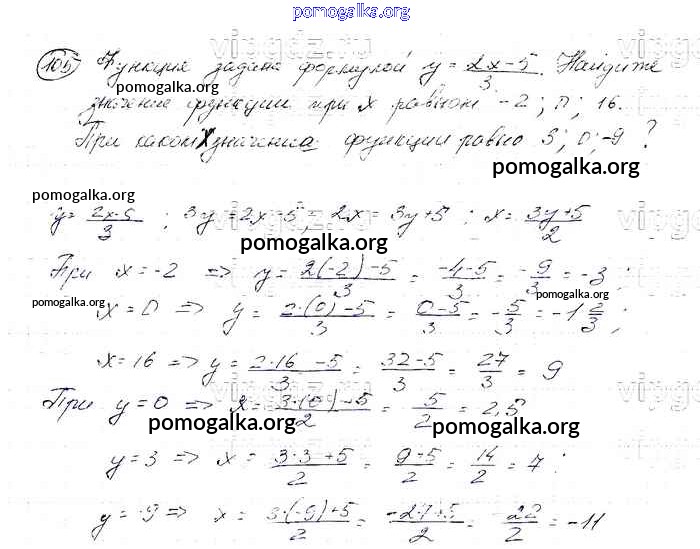 pomogalka.org
105 Функция задана формулой y = 2x-5/3. Найдите
pomogalka.org
значение функции при x равном -2; 0; 16.
При каком x значение функции равно 3; 0; -9 ?
pomogalka.org
pomogalka.org
y = 2x-5/3 ; 3y = 2x-5; 2x = 3y+5 ; x = 3y+5/2
pomogalka.org
При x = -2 => y = 2(-2)-5/3 = -4-5/3 = -9/3 = -3 ;
pomogalka.org pomogalka.org
x = 0 => y = 2·(0)-5/3 = 0-5/3 = -5/3 = -1 2/3 ;
x = 16 => y = 2·16-5/3 = 32-5/3 = 27/3 = 9
При y = 0 => x = 3·(0)+5/2 = 5/2 = 2,5
pomogalka.org pomogalka.org
y = 3 => x = 3·3+5/2 = 9+5/2 = 14/2 = 7 ;
y = -9 => x = 3·(-9)+5/2 = -27+5/2 = -22/2 = -11